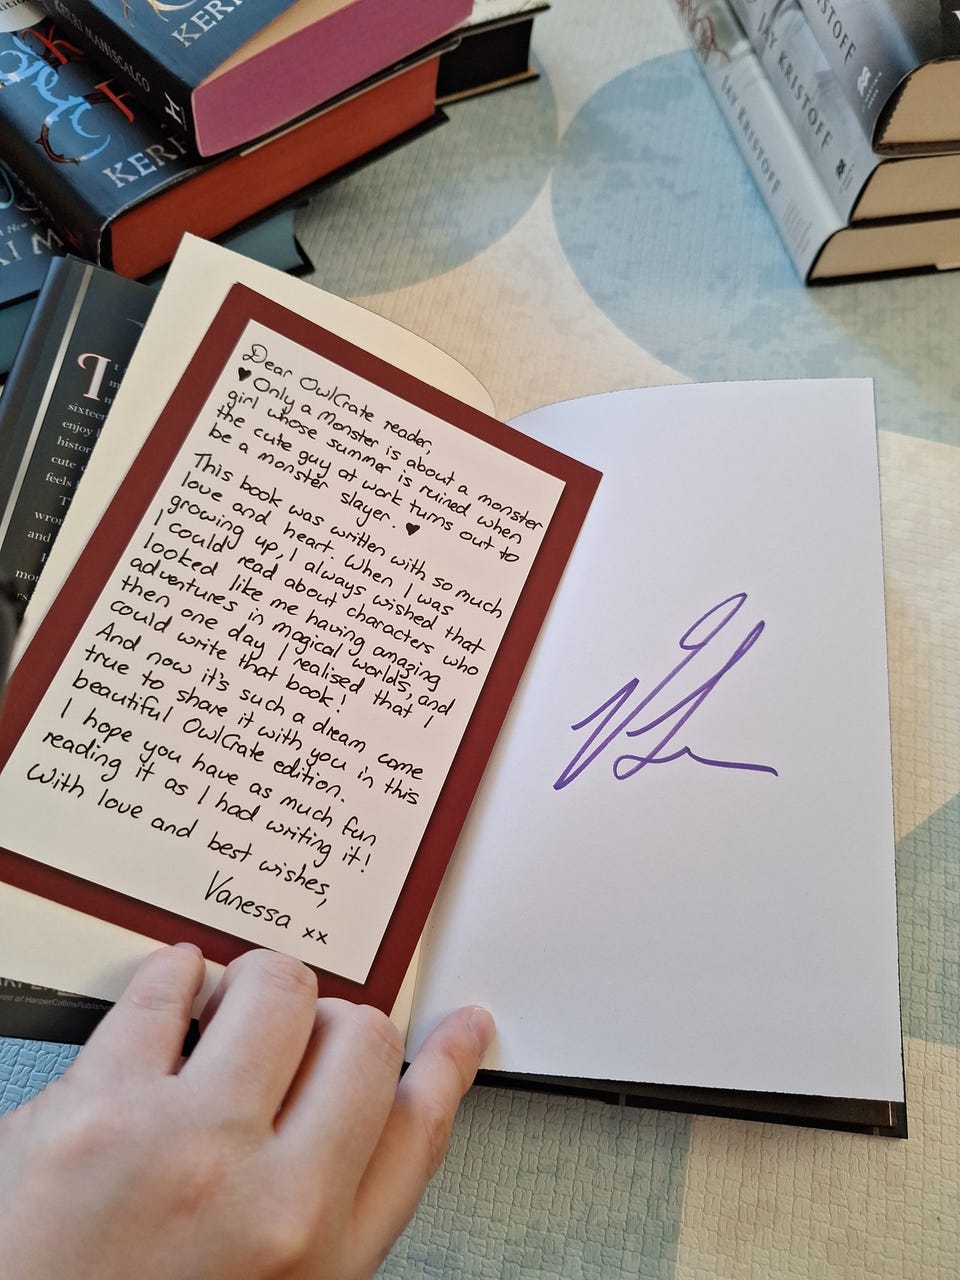 KERRI MANISCALCO
KER
KERR
JAY KRISTOFF
JAY KRISTOFF
Dear OwlCrate reader,
♥ Only a Monster is about a monster
girl whose summer is ruined when
the cute guy at work turns out to
be a monster slayer. ♥
This book was written with so much
love and heart. When I was
growing up, I always wished that
I could read about characters who
looked like me having amazing
adventures in magical worlds, and
then one day I realised that I
could write that book!
And now it's such a dream come
true to share it with you in this
beautiful OwlCrate edition.
I hope you have as much fun
reading it as I had writing it!
With love and best wishes,
Vanessa xx
sixteen
enjoy
histor
cute
feels
wron
and
HarperCollinsPublishers